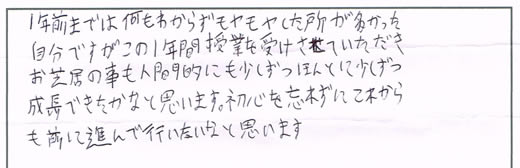 1年前までは何もわからずモヤモヤした所が多かった
自分ですがこの1年間授業を受けさせていただき
お芝居の事も人間的にも少しずつほんとに少しずつ
成長できたかなと思います。初心を忘れずにこれから
も前に進んで行いたいなと思います